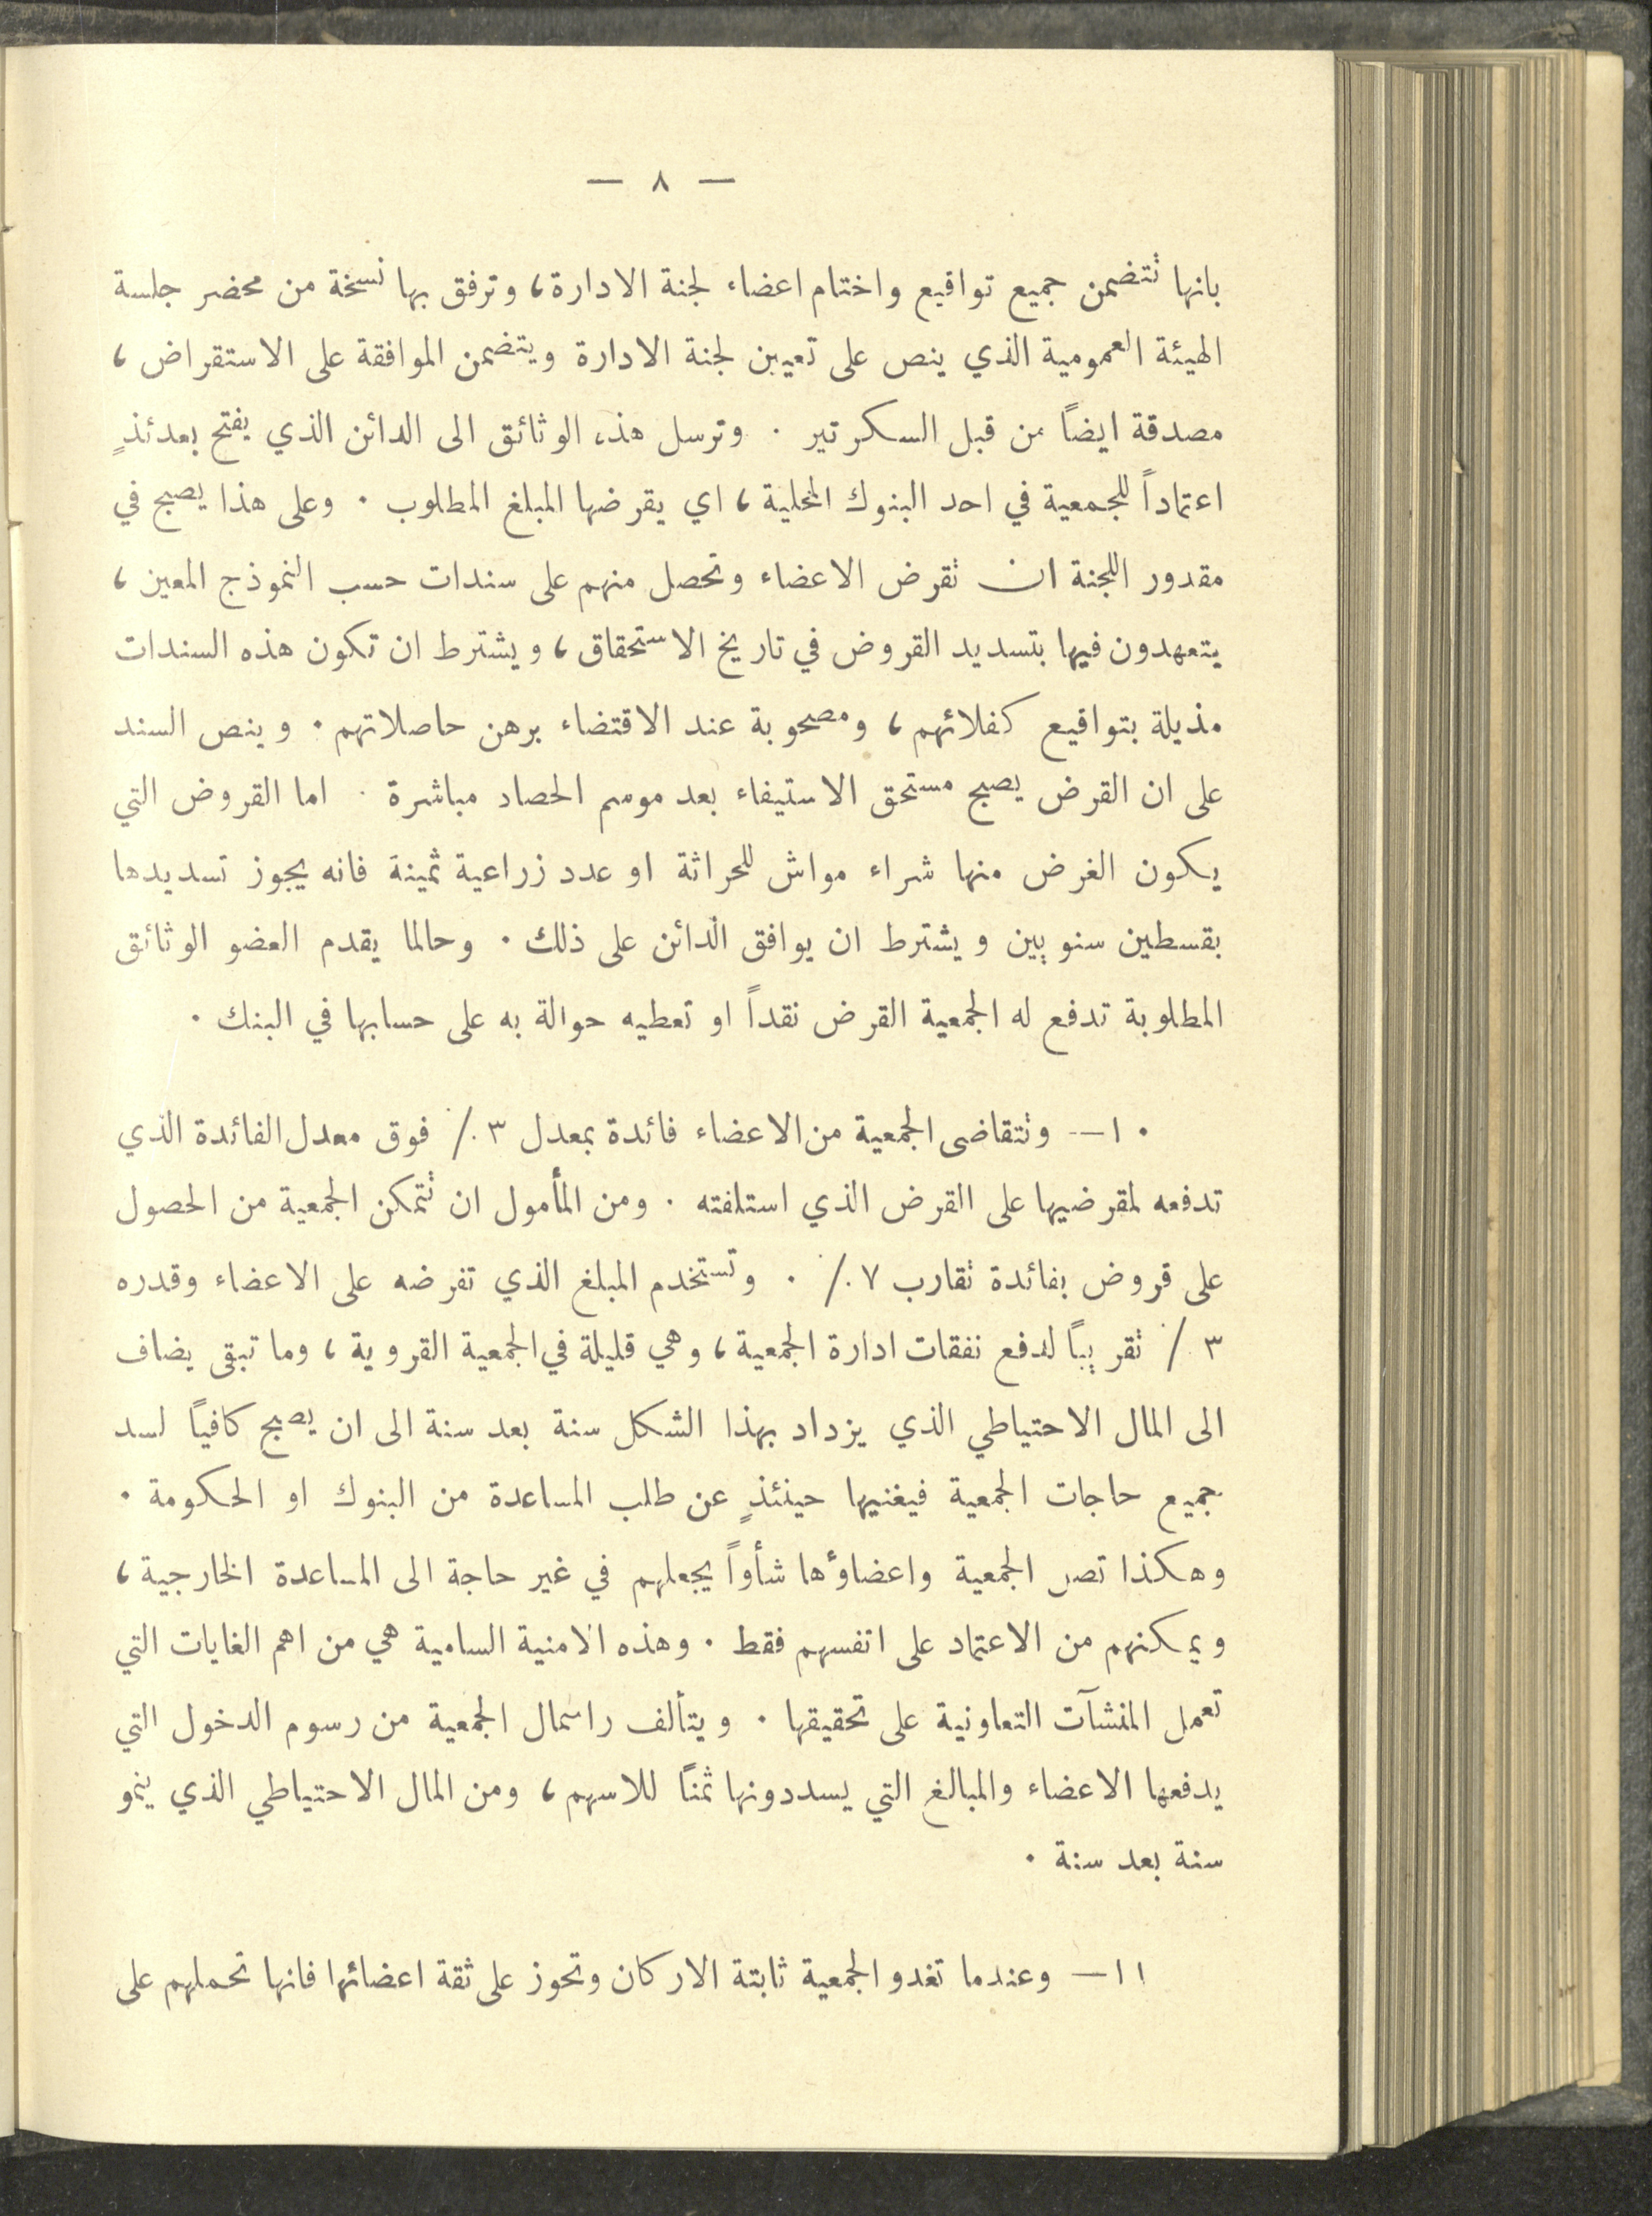 — ٨ —
بانها تتضمن جميع تواقيع واختام اعضاء لجنة الادارة، وترفق بها نسخة من محضر جلسة
الهيئة العمومية الذي ينص على تعيين لجنة الادارة ويتضمن الموافقة على الاستقراض،
مصدقة ايضاً من قبل السكرتير . وترسل هذه الوثائق الى الدائن الذي يفتح بعدئذٍ
اعتماداً للجمعية في احد البنوك المحلية، اي يقرضها المبلغ المطلوب . وعلى هذا يصبح في
مقدور اللجنة ان تقرض الاعضاء وتحصل منهم على سندات حسب النموذج المعين،
يتعهدون فيها بتسديد القروض في تاريخ الاستحقاق، ويشترط ان تكون هذه السندات
مذيلة بتواقيع كفلائهم، ومصحوبة عند الاقتضاء برهن حاصلاتهم . وينص السند
على ان القرض يصبح مستحق الاستيفاء بعد موسم الحصاد مباشرة . اما القروض التي
يكون الغرض منها شراء مواش للحراثة او عدد زراعية ثمينة فانه يجوز تسديدها
بقسطين سنويين ويشترط ان يوافق الدائن على ذلك . وحالما يقدم العضو الوثائق
المطلوبة تدفع له الجمعية القرض نقداً او تعطيه حوالة به على حسابها في البنك .
١٠— وتتقاضى الجمعية من الاعضاء فائدة بمعدل ٣ ٪ فوق معدل الفائدة الذي
تدفعه لمقرضيها على القرض الذي استلفته . ومن المأمول ان تتمكن الجمعية من الحصول
على قروض بفائدة تقارب ٧ ٪ . وتستخدم المبلغ الذي تفرضه على الاعضاء وقدره
٣ ٪ تقريباً لدفع نفقات ادارة الجمعية، وهي قليلة في الجمعية القروية، وما تبقى يضاف
الى المال الاحتياطي الذي يزداد بهذا الشكل سنة بعد سنة الى ان يصبح كافياً لسد
جميع حاجات الجمعية فيغنيها حينئذٍ عن طلب المساعدة من البنوك او الحكومة .
وهكذا تصل الجمعية واعضاؤها شأواً يجعلهم في غير حاجة الى المساعدة الخارجية،
ويمكنهم من الاعتماد على انفسهم فقط . وهذه الامنية السامية هي من اهم الغايات التي
تعمل المنشآت التعاونية على تحقيقها . ويتألف راسمال الجمعية من رسوم الدخول التي
يدفعها الاعضاء والمبالغ التي يسددونها ثمناً للاسهم، ومن المال الاحتياطي الذي ينمو
سنة بعد سنة .
١١— وعندما تغدو الجمعية ثابتة الاركان وتحوز على ثقة اعضائها فانها تحملهم على